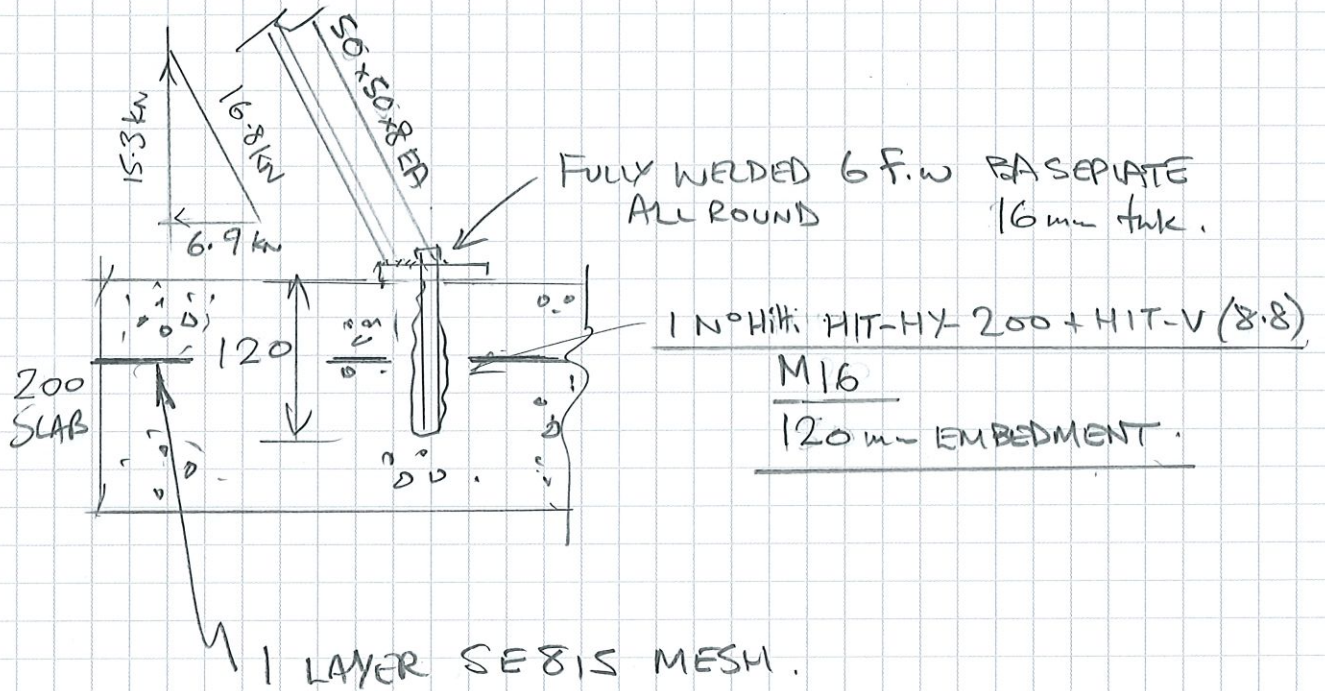 15.3 kN
16.8 kN
6.9 kN
50x50x8 EA
FULLY WELDED 6 F.W BASEPLATE
ALL ROUND 16mm thk.
120
200
SLAB
1 No Hilti HIT-HY-200 + HIT-V (8.8)
M16
120mm EMBEDMENT.
1 LAYER SE815 MESH.